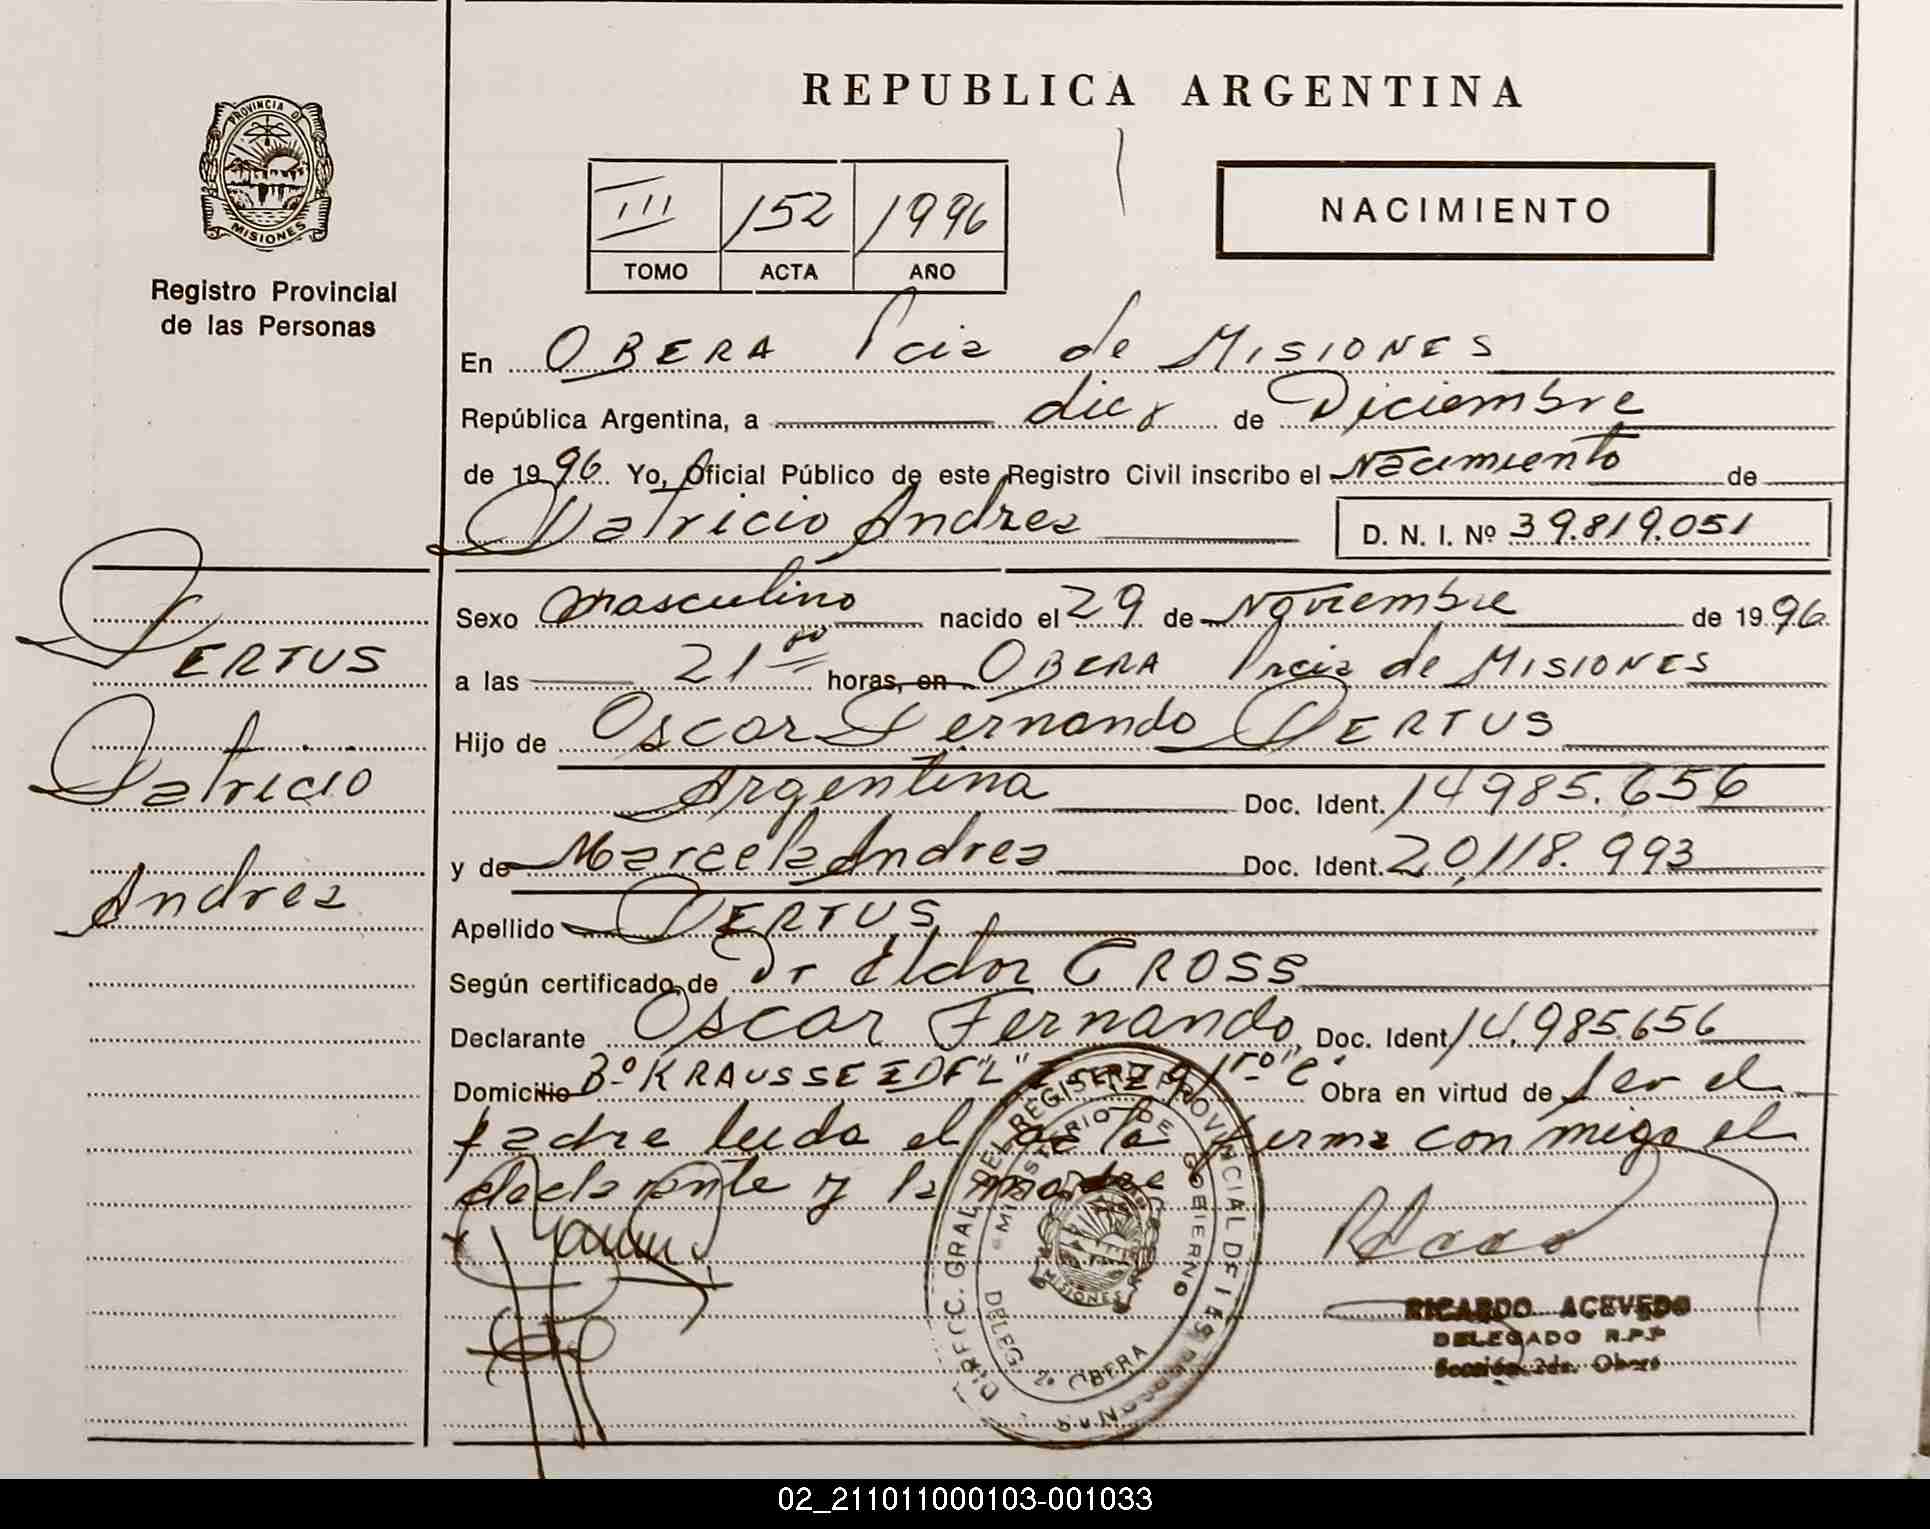 REPUBLICA ARGENTINA
PROVINCIA DE
MISIONES
Registro Provincial
de las Personas
III 152 1996
TOMO ACTA AÑO
NACIMIENTO
En OBERA Pcia de MISIONES
República Argentina, a diez de Diciembre
de 1996 Yo, Oficial Público de este Registro Civil inscribo el Nacimiento de
Patricio Andres
D. N. I. Nº 39.819.051
PERTUS
Patricio
Andres
Sexo masculino nacido el 29 de Noviembre de 1996
a las 21 00 horas, en OBERA Pcia de MISIONES
Hijo de Oscar Fernando PERTUS
Argentina Doc. Ident. 14985.656
y de Marcela Andrea Doc. Ident. 20.118.993
Apellido PERTUS
Según certificado de Dr Eldor GROSS
Declarante Oscar Fernando Doc. Ident 14.985.656
Domicilio Bº KRAUSSE EDF "L" "C" Obra en virtud de ser el
padre leida el acta firma conmigo el
declarante y la madre
DIRECC. GRAL DEL REGISTRO PROVINCIAL DE LAS PERSONAS
MINISTERIO DE GOBIERNO
MISIONES
DELEG. 2ª OBERA
RICARDO ACEVEDO
DELEGADO R.P.P
Sección 2da. Oberá
02_211011000103-001033